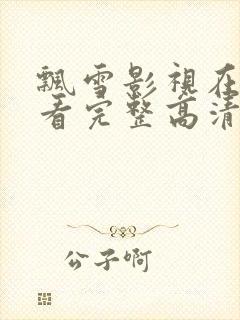 飄雪影視在
看完整高清
公子啊